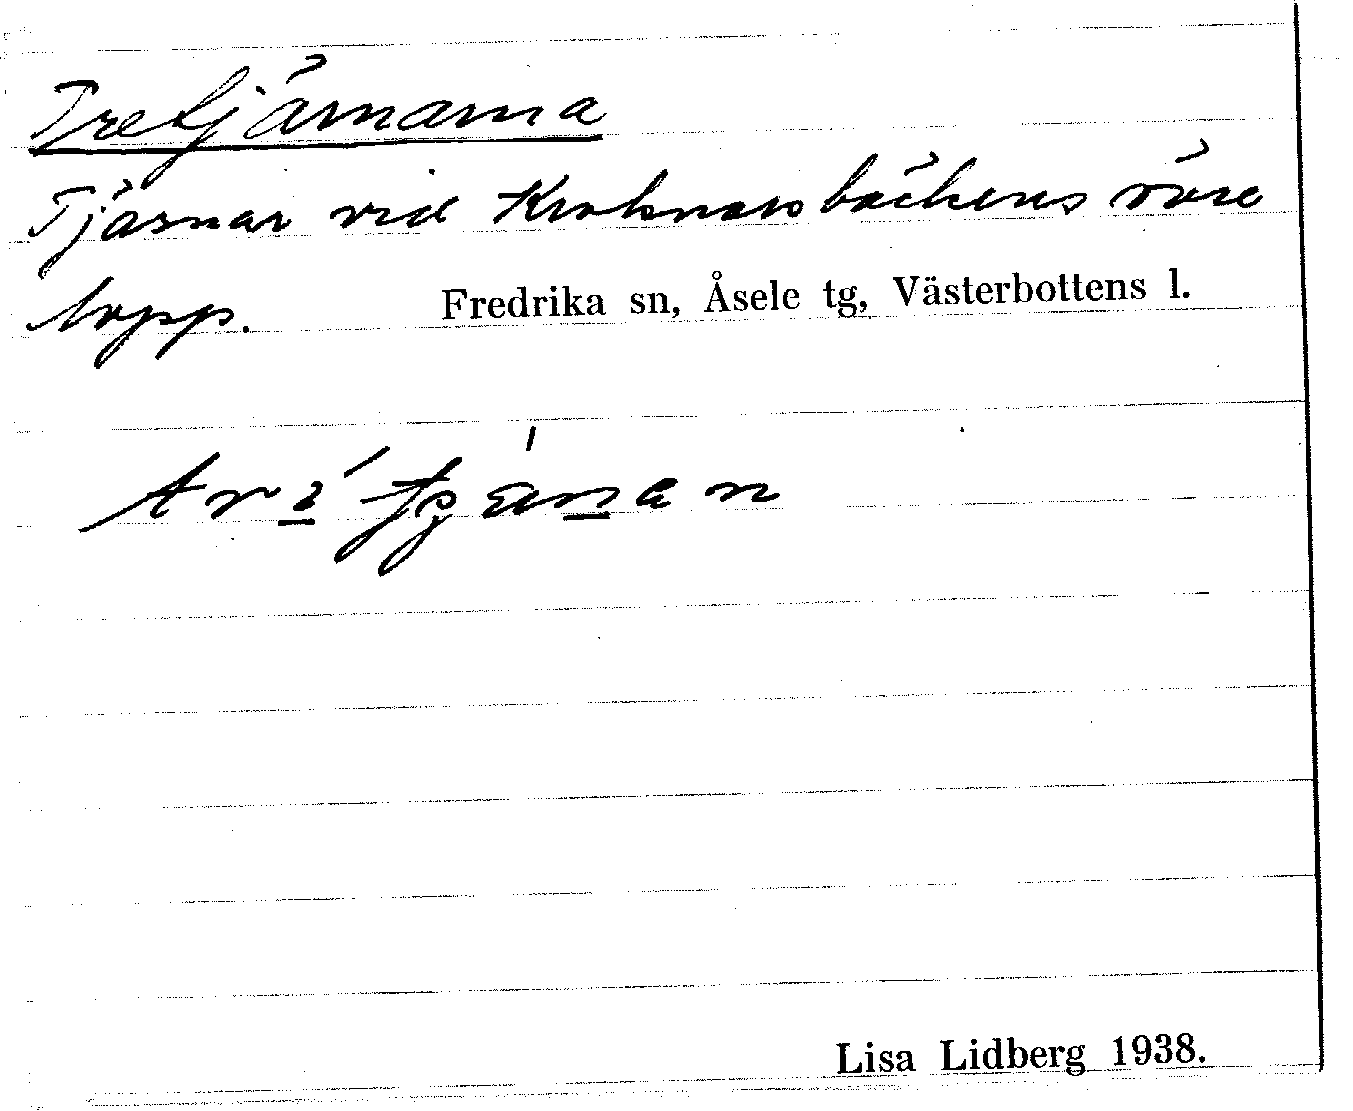 Tretjärnarna
Tjärnar vid Kroknorsbäckens övre
lopp.
Fredrika sn, Åsele tg, Västerbottens l.
Lisa Lidberg 1938.